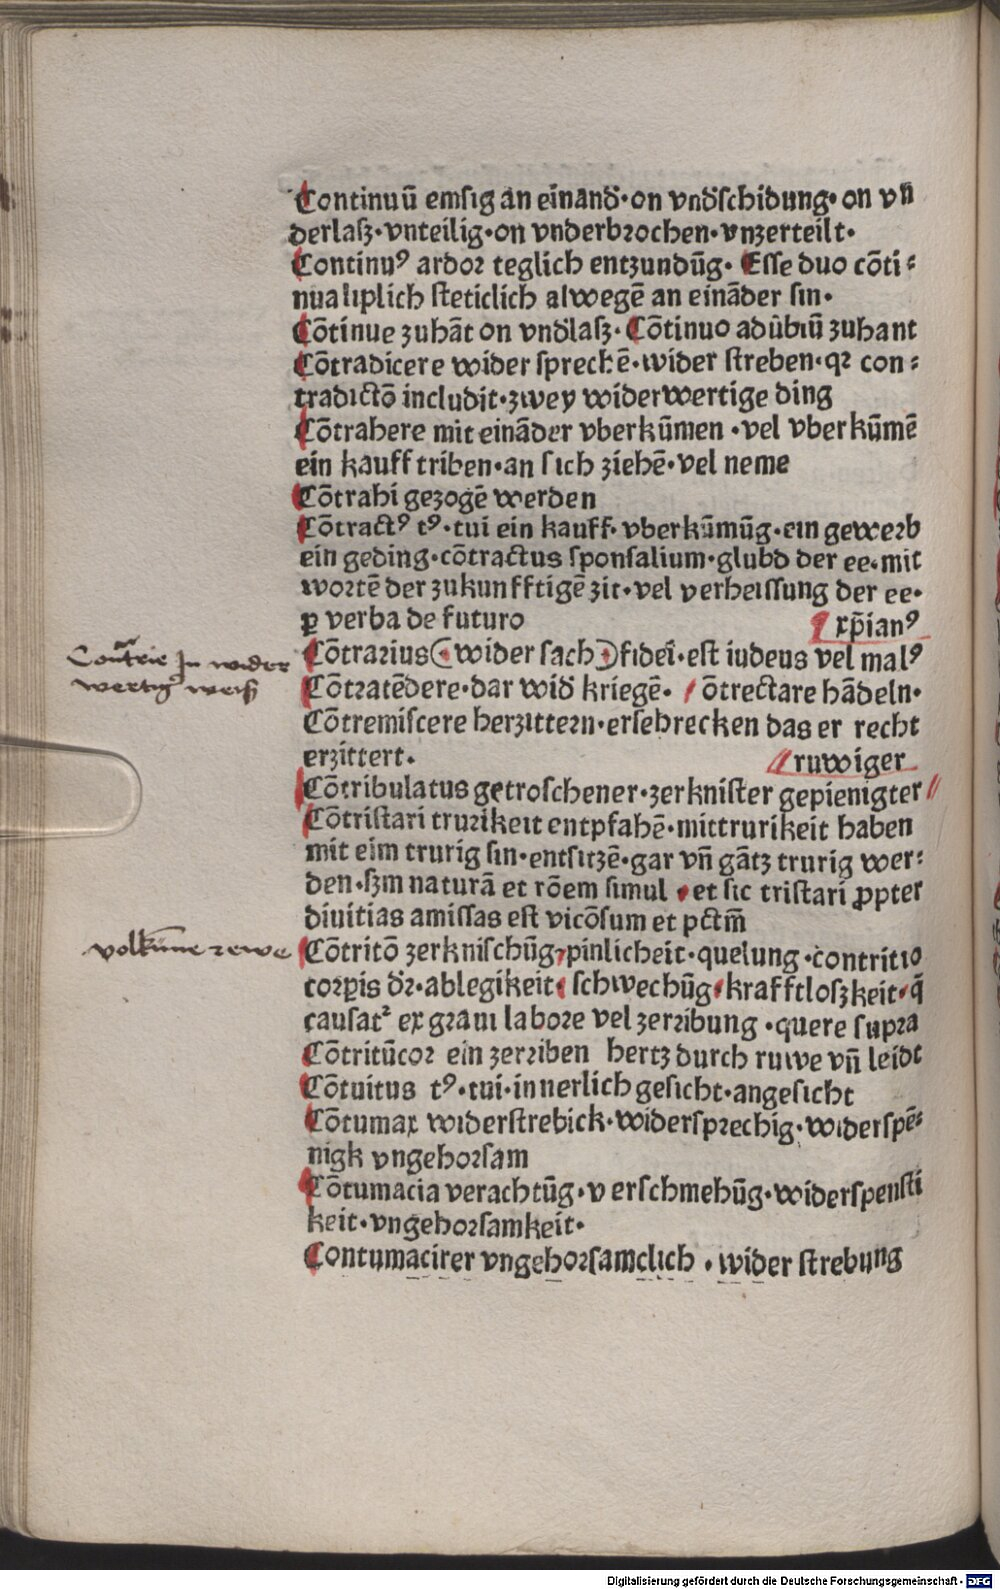 Continuū emsig an einand̄·on vnd̄schidung·on vn̄
derlasz·vnteilig·on vnderbꝛochen·vnzerteilt·
Continuꝰ ardoꝛ teglich entzundūg· Esse duo cōti⸗
nualiplich steticlich alwegē an eināder sin·
Cōtinue zuhāt on vnd̄lasz· Cōtinuo adūbiū zuhant
Cōtradicere wider sprechē·wider streben·qꝛ con⸗
tradictō includit·zwey widerwertige ding
Cōtrahere mit eināder vberkūmen ·vel vberkūmē
ein kauff triben·an sich ziehē·vel neme
Cōtrahi gezogē werden
Cōtractꝰ tꝰ·tui ein kauff·vberkūmūg·ein gewerb
ein geding·cōtractus sponsalium·glubd der ee·mit
woꝛtē der zukunfftigē zit·vel verheissung der ee·
ꝑ verba de futuro
xp̄ianꝰ
Coūtrie In wider
wertig weiß
Cōtrarius(·wider sach·)fidei·est iudeus vel malꝰ
Cōtꝛatēdere·dar wid̄ kriegē· ōtrectare hādeln·
Cōtremiscere herzittern·ersehrecken das er recht
erzittert·
ruwiger
Cōtribulatus getroschener·zerknister gepienigter
Cōtristari truꝛikeit entpfahē·mittrurikeit haben
mit eim trurig sin·entsitzē·gar vn̄ gātz trurig wer⸗
den·sꝫm naturā et rōem simul ·et sic tristari ꝓpter
diuitias amissas est vicōsum et pctm̄
volkūmne rewe
Cōtritō zerknischūg,pinlicheit·quelung·contritio
coꝛꝑis dꝛ̄·ablegikeit·schwechūg·krafftloszkeit·q̄
causatꝛ ex graui laboꝛe vel zerꝛibung ·quere supꝛa
Cōtritūcoꝛ ein zerꝛiben hertz durch ruwe vn̄ leidt
Cōtuitus tꝰ·tui·innerlich gesicht·angesicht
Cōtumax widerstrebick·widerspꝛechig·widerspē⸗
nigk vngehoꝛsam
Cōtumacia verachtūg·v erschmehūg·widerspensti
keit·vngehoꝛsamkeit·
Contumacirer vngehoꝛsamclich ·wider strebung
Digitalisierung gefördert durch die Deutsche Forschungsgemeinschaft - DFG